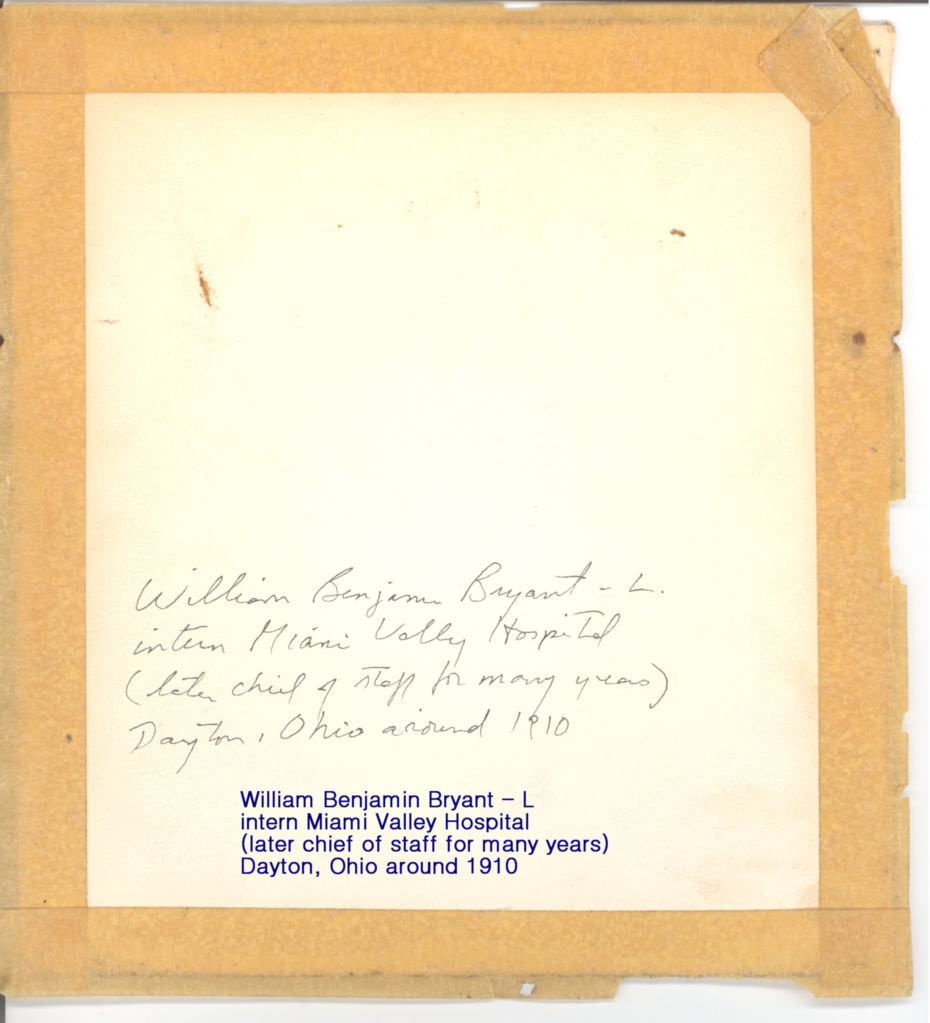 William Benjamin Bryant - L.
intern Miami Valley Hospital
(later chief of staff for many years)
Dayton, Ohio around 1910
William Benjamin Bryant – L
intern Miami Valley Hospital
(later chief of staff for many years)
Dayton, Ohio around 1910